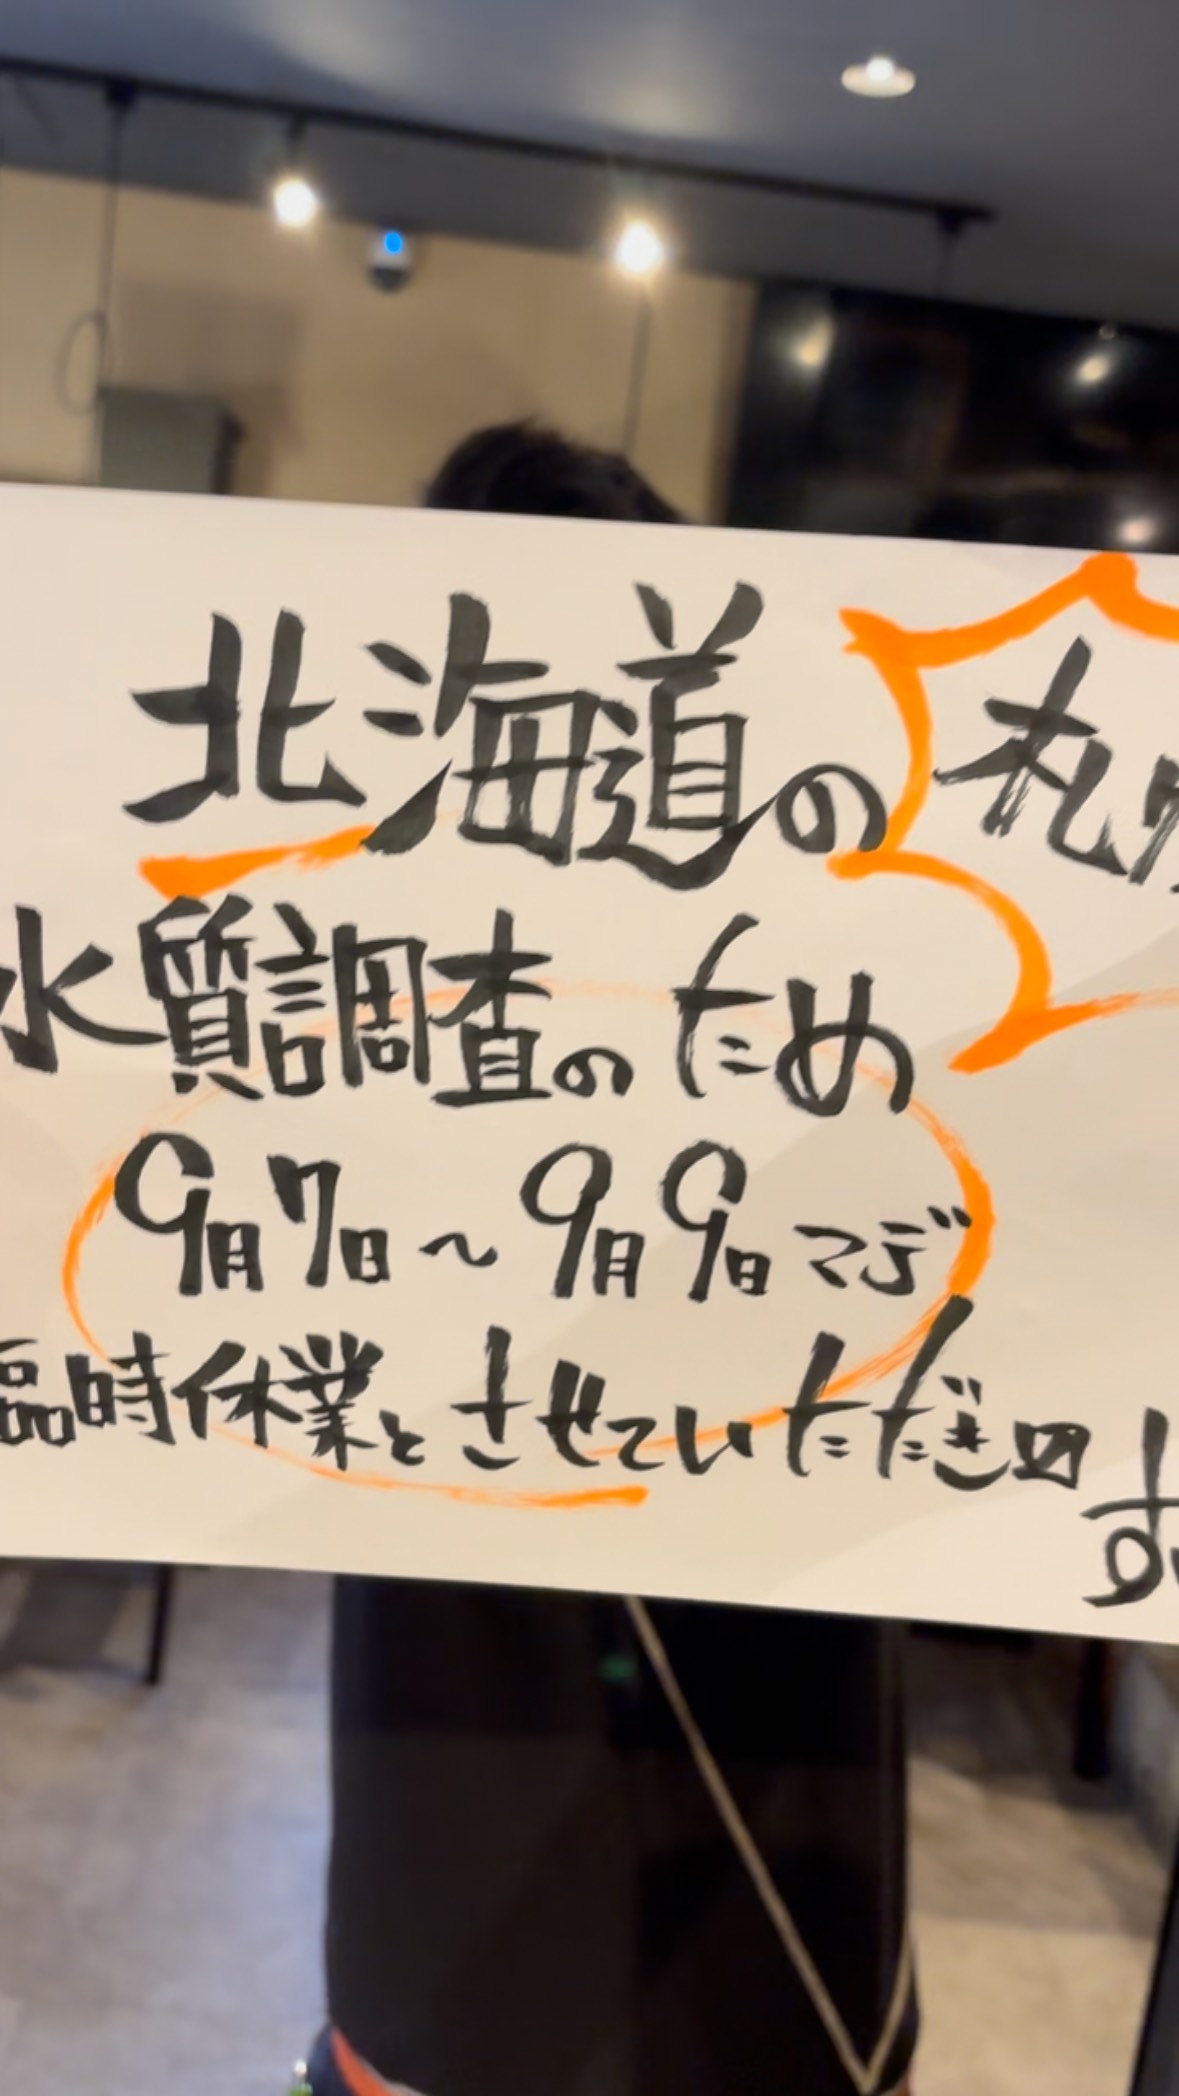 北海道の札
水質調査のため
9月7日～9月9日マデ
臨時休業とさせていただき〼
す